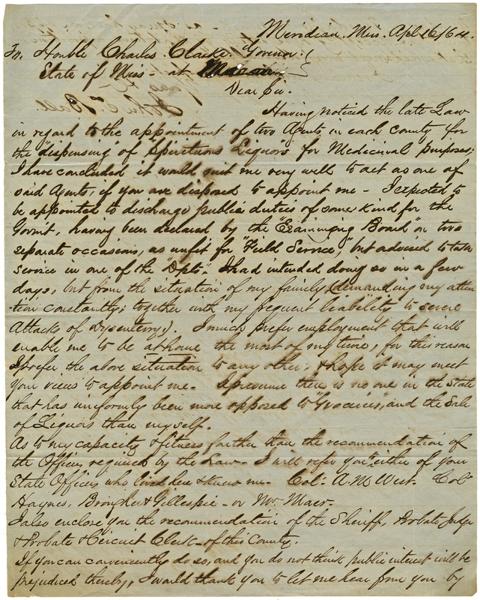 Meridian. Miss. Apl 16/64.
To, Honble Charles Clark Govenor
State of Miss - at Macon
Dear Sir.
Having noticed the late Law
in regard to the appointment of two Agents in each County for
the "dispensing" of Spirituous Liquors for Medicinal purposes;
I have concluded it would suit me very well to act as one of
said Agents, if you are disposed to appoint me - I expected to
be appointed to discharge public duties of some kind for the
Govmt, having been declared by the "Examining Board" on two
separate occasions, as unfit for Field Service, but advised to take
service in one of the Dpts. I had intended doing so in a few
days; but from the situation of my family, demanding my atten
tion constantly; together with my frequent liability to severe
Attacks of Dysentery; I much prefer employment that will
enable me to be at home the most of my time; for this reason
I prefer the above situation to any other, & hope it may meet
your views to appoint me. I presume there is no one in the State
that has uniformly been more opposed to "Groceries", and the Sale
of Liquors than myself.
As to my capacity & fitness farther than the recommendation of
the Officers required by the Law - I will refer you either of your
State Officers who lived here & knew me. Col: A. M. West. Cols
Haynes, Brougher & Gillespie - or Mr.
I also enclose you the recommendation of the Sheriff, Probate Judge
& Probate & Circuit Clerk - of this County.
If you can conveniently do so, and you do not think public interest will be
prejudiced thereby, I would thank you to let me hear from you by